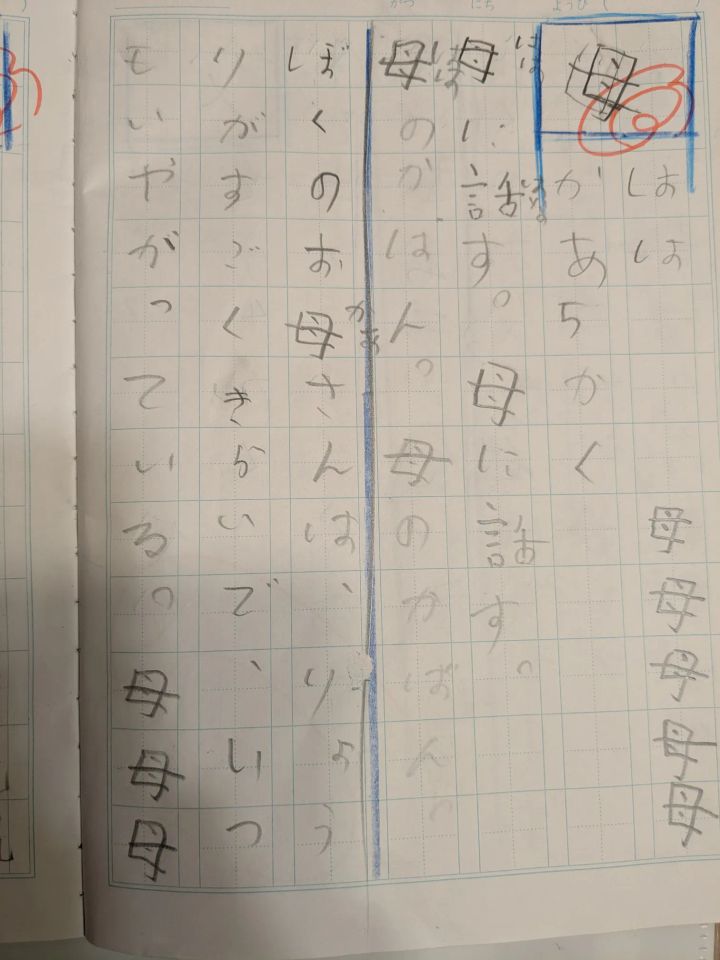 母
はは母母母母母
かあ5かく
母に話す。母に話す。
はは
はな
母のかはん。母のかばん。
はは
ぼくのお母さんは、りょう
かあ
りがすごくきらいで、いつ
もいやがっている。母母母